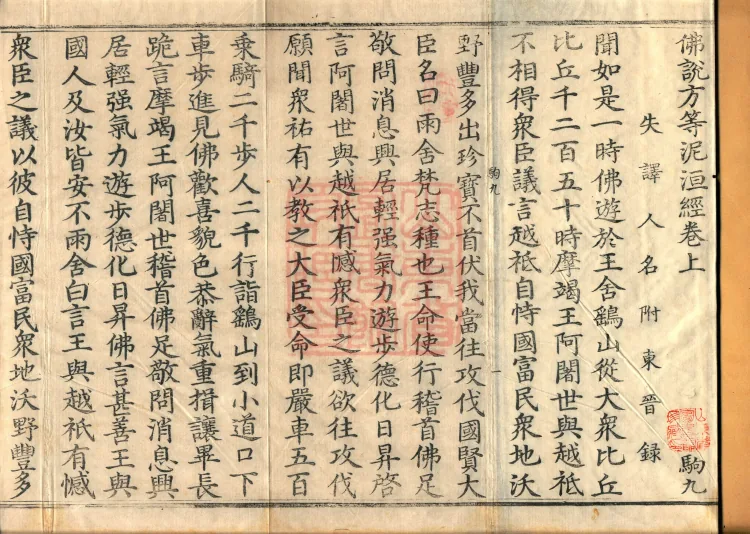 佛說方等泥洹經卷上
駒九
失譯人名附東晉錄
聞如是一時佛遊於王舍鷂山從大衆比丘
比丘千二百五十時摩竭王阿闍世與越祇
不相得衆臣議言越祗自恃國富民衆地沃
駒九
野豐多出珍寶不首伏我當往攻伐國賢大
臣名曰雨舍梵志種也王命使行稽首佛足
敬問消息興居輕强氣力遊步德化日昇啓
言阿闍世與越祇有憾衆臣之議欲往攻伐
願聞衆祐有以教之大臣受命即嚴車五百
乘騎二千步人二千行詣鷂山到小道口下
車步進見佛歡喜貌色恭辭氣重揖讓畢長
跪言摩竭王阿闍世稽首佛足敬問消息興
居輕强氣力遊步德化日昇佛言甚善王與
國人及汝皆安不雨舍白言王與越祇有憾
衆臣之議以彼自恃國富民衆地沃野豐多